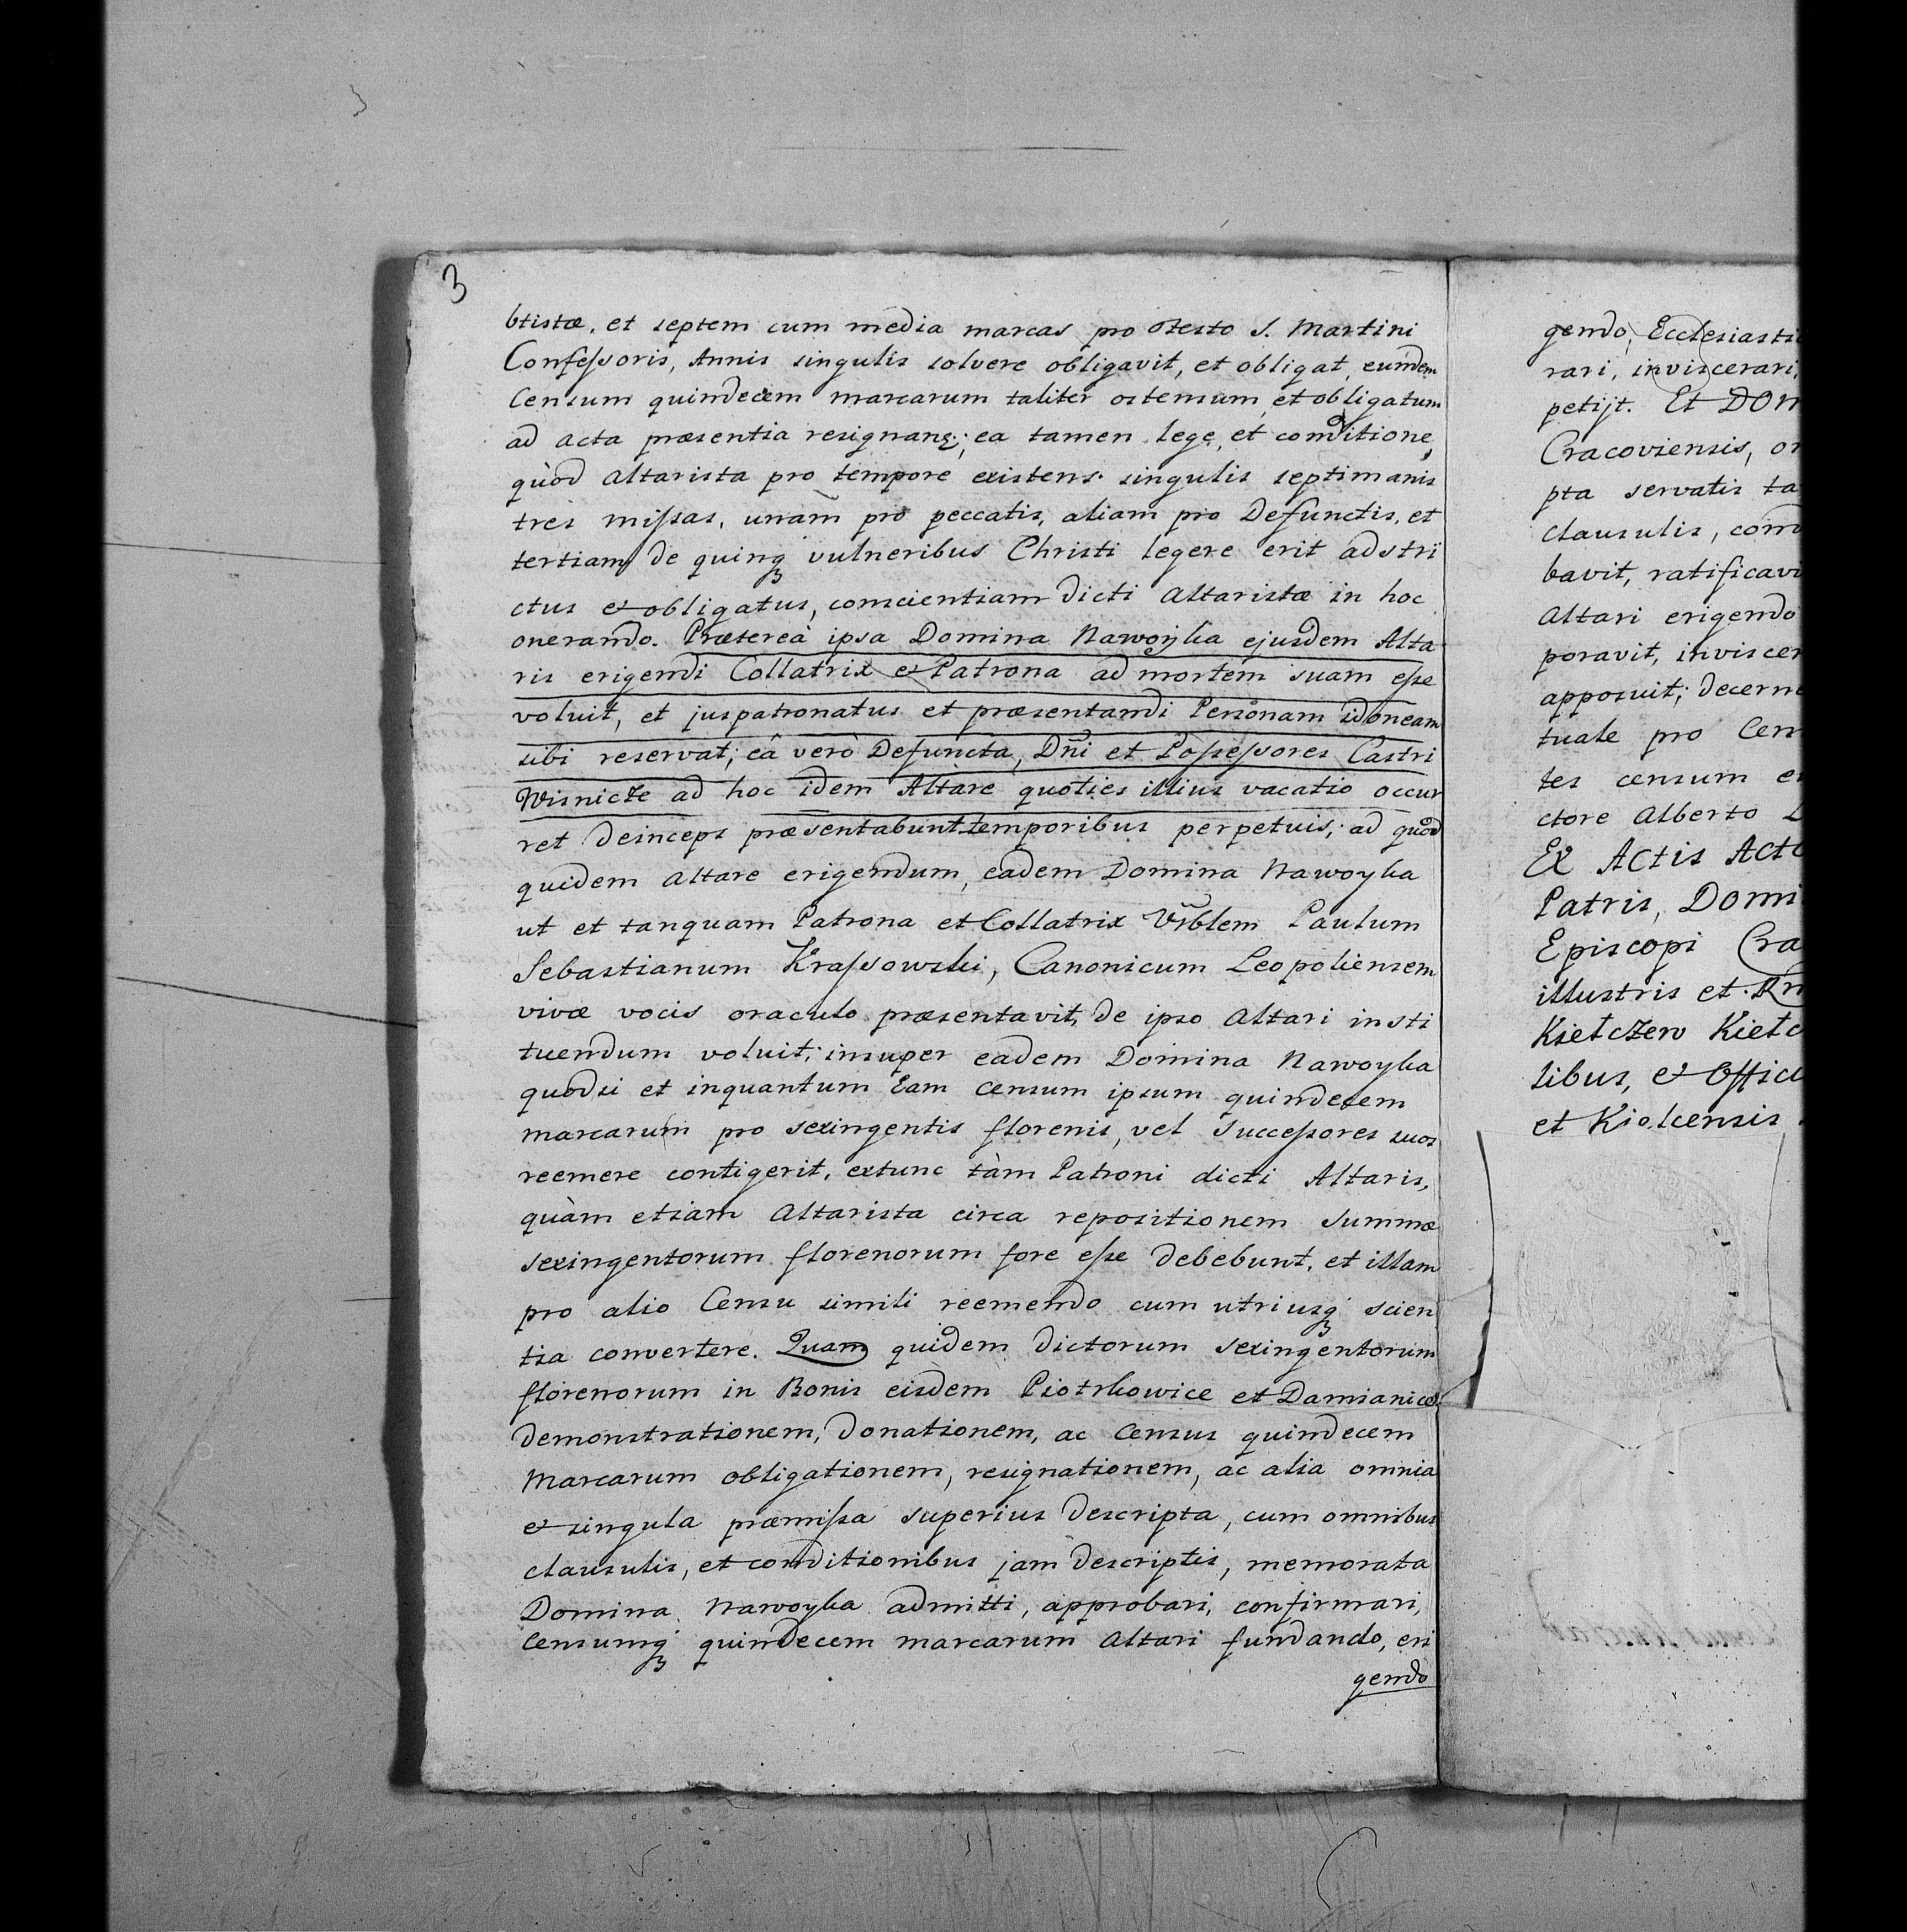 3
btistæ, et septem cum media marcas pro Festo S. Martini
Confessoris, Annis singulis solvere obligavit, et obligat, eundem
Censum quindecem marcarum taliter ostensum, et obligatum
ad acta præsentia resignans; ea tamen lege, et conditione,
quòd Altarista pro tempore existens singulis septimanis
tres missas, unam pro peccatis, aliam pro Defunctis, et
tertiam de quinq₃ vulneribus Christi legere erit adstri
ctus et obligatus, conscientiam dicti Altaristæ in hoc
onerando. Prætereà ipsa Domina Nawoyka ejusdem Alta
ris erigendi Collatrix et Patrona ad mortem suam esse
voluit, et juspatronatus et præsentandi Personam idoneam
sibi reservat; eâ verò Defuncta, Dñi et Possessores Castri
Wisnicze ad hoc idem Altare quoties illius vacatio occur
ret deinceps præsentabunt temporibus perpetuis; ad quod
quidem Altare erigendum, eadem Domina Nawoyka
ut et tanquam Patrona et Collatrix Vrblem Paulum
Sebastianum Krassowski, Canonicum Leopoliensem
vivæ vocis oraculo præsentavit, de ipso Altari insti
tuendum voluit; insuper eadem Domina Nawoyka
quodsi et inquantum Eam censum ipsum quindecem
marcarum pro sexingentis florenis, vel Successores suos
reemere contigerit, extunc tàm Patroni dicti Altaris,
quàm etiam Altarista circa repositionem Summæ
sexingentorum florenorum fore esse debebunt, et illam
pro alio Censu simili reemendo cum utriusq₃ scien
tia convertere. Quam quidem dictorum sexingentorum
florenorum in Bonis eisdem Piotrkowice et Damianice
demonstrationem, donationem, ac Census quindecem
Marcarum obligationem, resignationem, ac alia omnia
et singula præmissa superius descripta, cum omnibus
clausulis, et conditionibus jam descriptis, memorata
Domina Nawoyka admitti, approbari, confirmari,
Censumq₃ quindecem marcarum Altari fundando, eri
gendo
gendo, Ecclesiasti
rari, inviscerari,
petijt. Et DOM
Cracoviensis, or
pta servatis ta
clausulis, con
bavit, ratificav
Altari erigendo
poravit, inviscer
apposuit; decern
tuale pro Cen
tes censum e
ctore Alberto
Ex Actis Act
Patris, Domi
Episcopi Cra
illustris et
Kiełczew Kiełc
libus, et Offici
et Kielcensis